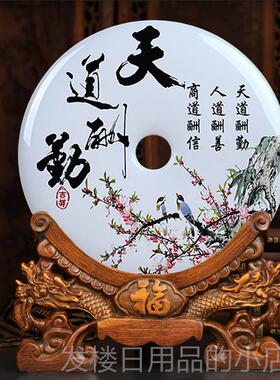 天道酬勤
吉祥
天道酬勤
人道酬善
商道酬信
福
发楼日用品的小店